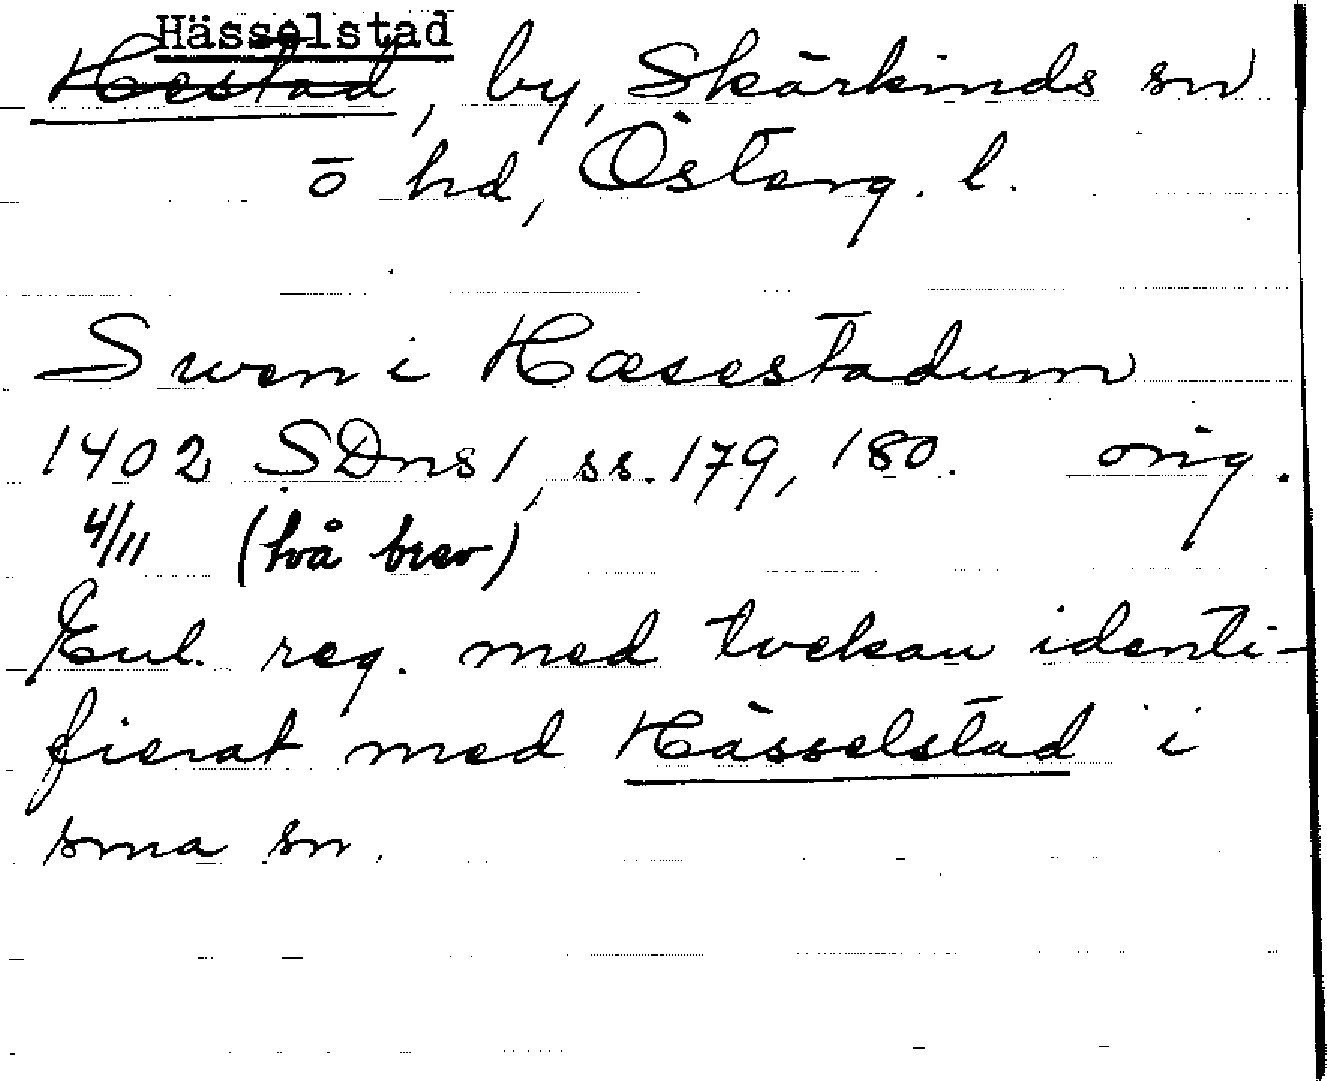 Hässelstad
Hestad, by, Skärkinds sn
o hd, Österg. l.
Swen i Hæsestadum
1402 SDns 1, ss. 179, 180. orig.
4/11 (två brev)
Enl. reg. med tvekan identi-
fierat med Hässelstad i
sma sn.